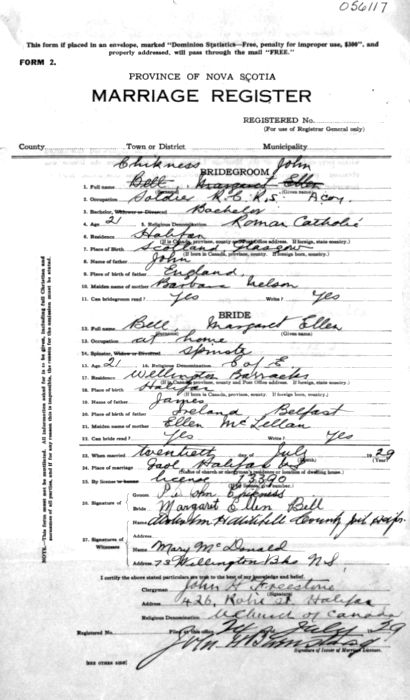 056117
This form if placed in an envelope, marked "Dominion Statistics—Free, penalty for improper use, $300", and
properly addressed, will pass through the mail "FREE."
FORM 2.
PROVINCE OF NOVA SCOTIA
MARRIAGE REGISTER
REGISTERED No.
(For use of Registrar General only)
County Town or District Municipality
BRIDEGROOM John
1. Full name Bell, Margaret Ellen
(Surname) (Given name)
2. Occupation Soldier R.C.R.
3. Bachelor, Widower or Divorced Bachelor
4. Age 21 5. Religious Denomination Roman Catholic
6. Residence Halifax
7. Place of Birth Scotland Glasgow
8. Name of father John
9. Place of birth of father England
10. Maiden name of mother Barbara Nelson
11. Can bridegroom read? Yes Write? Yes
BRIDE
12. Full name Bell, Margaret Ellen
(Surname) (Given name)
13. Occupation at home
14. Spinster, Widow or Divorced Spinster
15. Age 21 16. Religious Denomination C of E
17. Residence Wellington Barracks
18. Place of birth Halifax
19. Name of father James
20. Place of birth of father Ireland Belfast
21. Maiden name of mother Ellen McLellan
22. Can bride read? Yes Write? Yes
23. When married twentieth day of July 1929
(Month) (Year)
24. Place of marriage Gaol Halifax
25. By license License 3390
26. Signature of Groom
Bride Margaret Ellen Bell
27. Signature of Witnesses
Address
Name Mary McDonald
Address 73 Wellington Bks N.S.
I certify the above stated particulars are true to the best of my knowledge and belief.
Clergyman John H Freestone
(Signature)
Address 426 St Halifax
Religious Denomination United Church of Canada
Registered No. Filed at this office July 29
Signature of Issuer of Marriage Licenses.
(SEE OTHER SIDE)
NOTE.—This form must not be mutilated. All information asked for is to be given, including full Christian and
surnames of all parties, and if for any reason this is impossible, the reason for the omission must be stated.